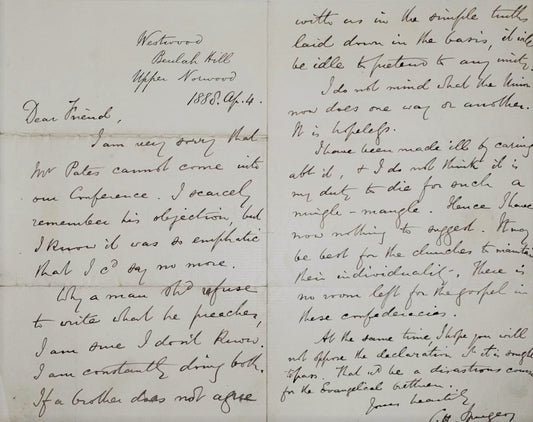 Westwood
Beulah Hill
Upper Norwood
1888. Ap. 4.
Dear Friend,
I am very sorry that
Mr Pates cannot come into
our Conference. I scarcely
remember his objection, but
I know it was so emphatic
that I cd say no more.
Why a man shd refuse
to write what he preaches,
I am sure I don't know.
I am constantly doing both.
If a brother does not agree
with us in the simple truths
laid down in the basis, it will
be idle to pretend to any unity.
I do not mind what the Union
now does one way or another.
It is hopeless.
I have been made ill by caring
abt it, & I do not think it is
my duty to die for such a
mingle-mangle. Hence I have
now nothing to suggest. It may
be best for the churches to maintain
their individuality. There is
no room left for the gospel in
these confederacies.
At the same time, I hope you will
not oppose the declaration if it is sought
to pass. That wd be a disastrous course
for the Evangelical brethren.
Yours heartily,
C. H. Spurgeon